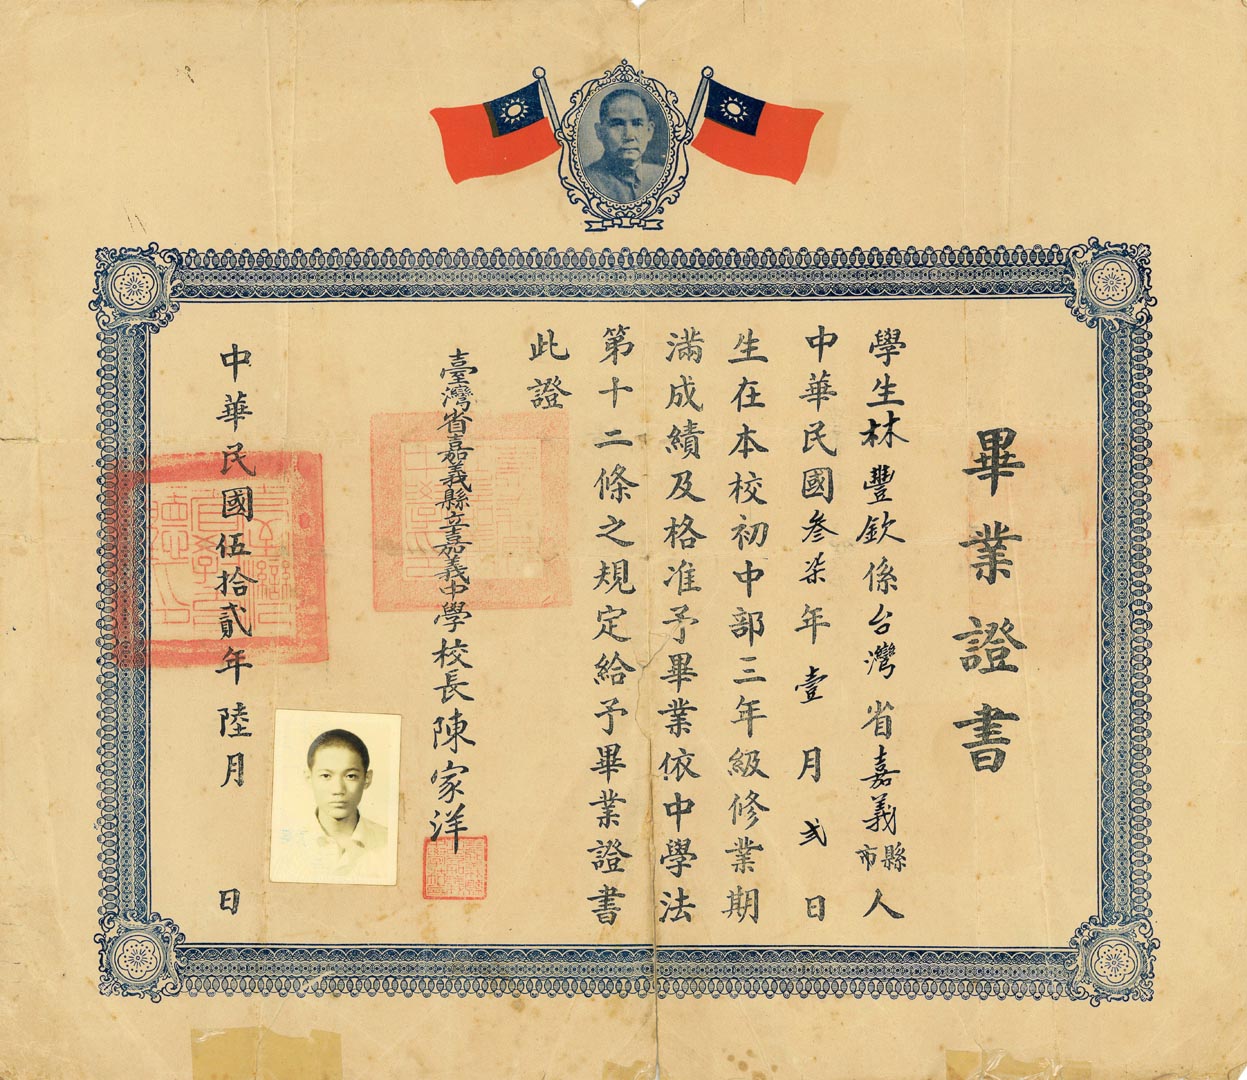 畢業證書
學生林豐欽係台灣省嘉義縣市人
中華民國叁柒年壹月弍日
生在本校初中部三年級修業期
滿成績及格准予畢業依中學法
第十二條之規定給予畢業證書
此證
臺灣省嘉義縣立嘉義中學校長陳家洋
中華民國伍拾貳年陸月 日